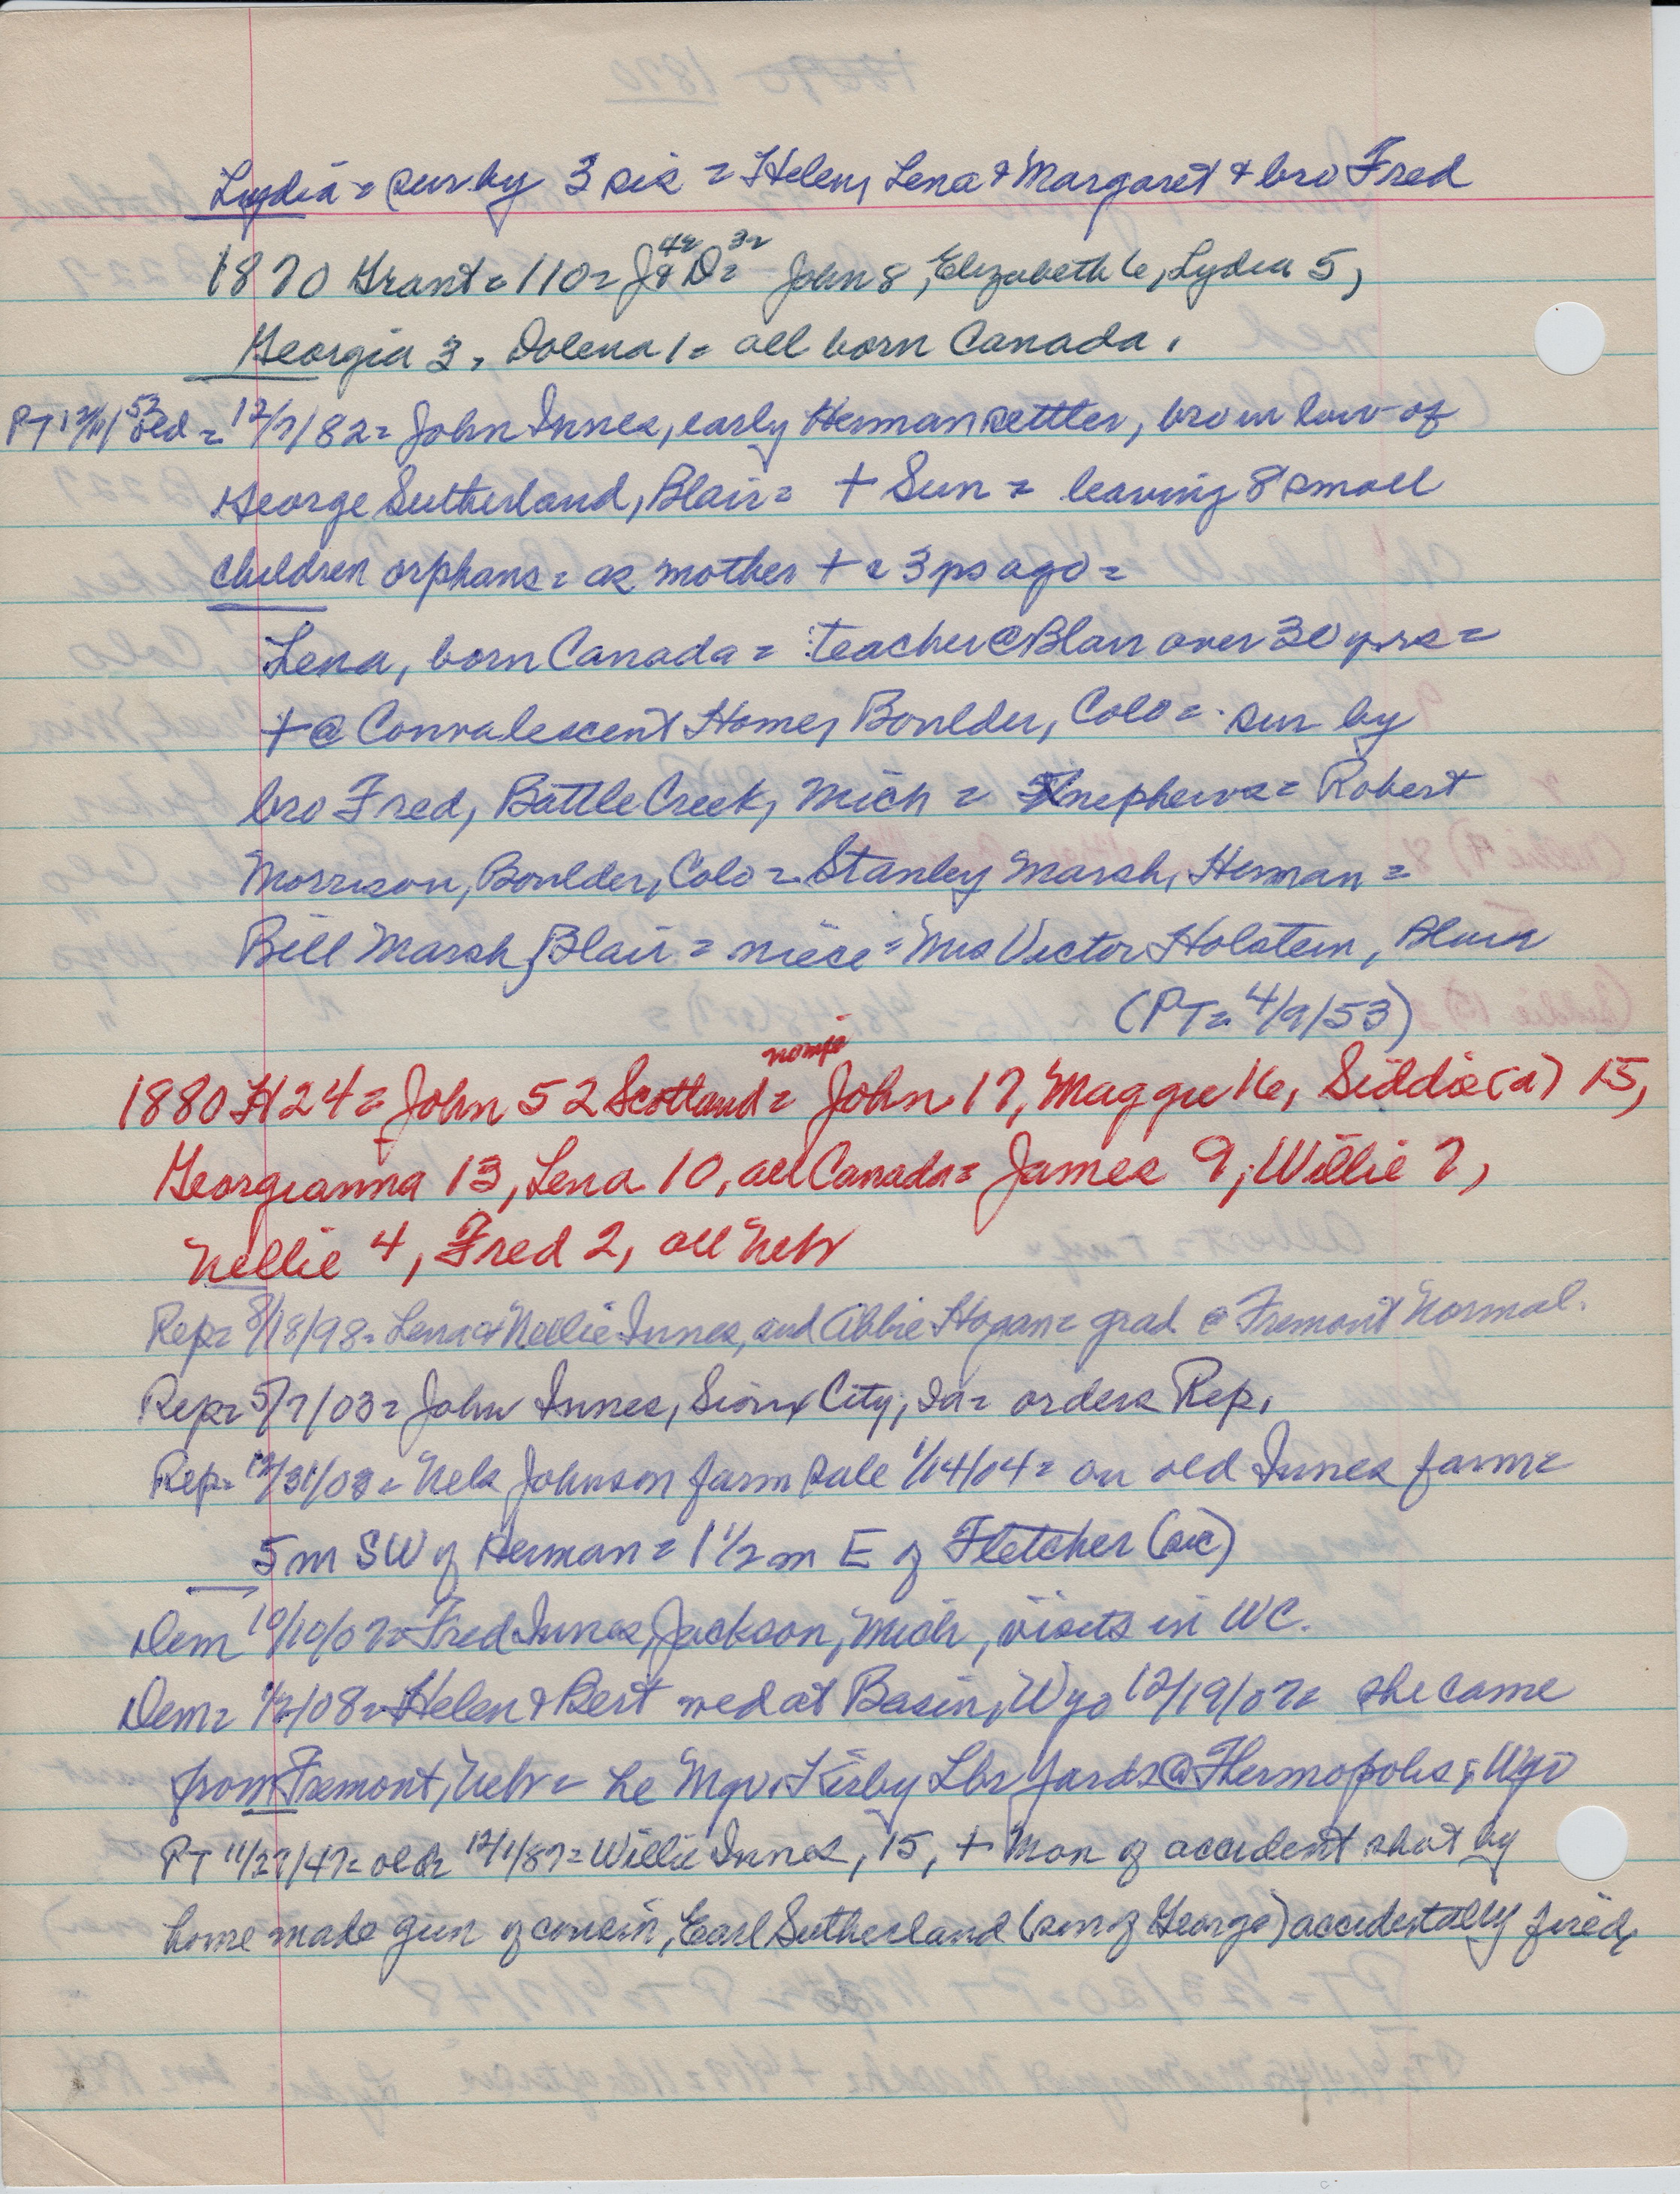 Lydia = sur by 3 sis = Helen, Lena & Margaret & bro Fred
1870 Grant = 110 = J 42 & D 32 = John 8, Elizabeth 6, Lydia 5,
Georgia 3, Dolena 1 = all born Canada.
PT 12/11/52 old = 12/7/82 = John Innes, early Herman settler, bro in law of
George Sutherland, Blair = + Sun = leaving 8 small
children orphans = as mother + 3 yrs ago =
Lena, born Canada = teacher @ Blair over 30 yrs =
+ @ Convalescent Home, Boulder, Colo = sur by
bro Fred, Battle Creek, Mich = nephews = Robert
Morrison, Boulder, Colo = Stanley Marsh, Herman =
Bill Marsh, Blair = niece = Mrs Victor Holstein, Blair
(PT = 4/9/53)
1880 H 24 = John 52 Scotland = no wife John 17, Maggie 16, Siddie (a) 15,
Georgianna 13, Lena 10, all Canada = James 9, Willie 7,
Nellie 4, Fred 2, all Nebr
Rep = 8/18/98 = Lena & Nellie Innes, and Abbie Hogan = grad @ Fremont Normal.
Rep = 5/7/03 = John Innes, Sioux City, Ia = orders Rep.
Rep = 12/31/03 = Nels Johnson farm sale 1/14/04 = on old Innes farm =
5 m SW of Herman = 1 1/2 m E of Fletcher (sic)
Dem 10/10/07 = Fred Innes, Jackson, Mich, visits in WC.
Dem = 1/2/08 = Helen & Bert wed at Basin, Wyo 12/19/07 = she came
from Fremont, Nebr = he Mgr Kirby Lbr Yards @ Thermopolis, Wyo
PT 11/27/47 = old = 12/1/87 = Willie Innes, 15, + Mon of accident shot by
home made gun of cousin, Earl Sutherland (son of George) accidentally fired,